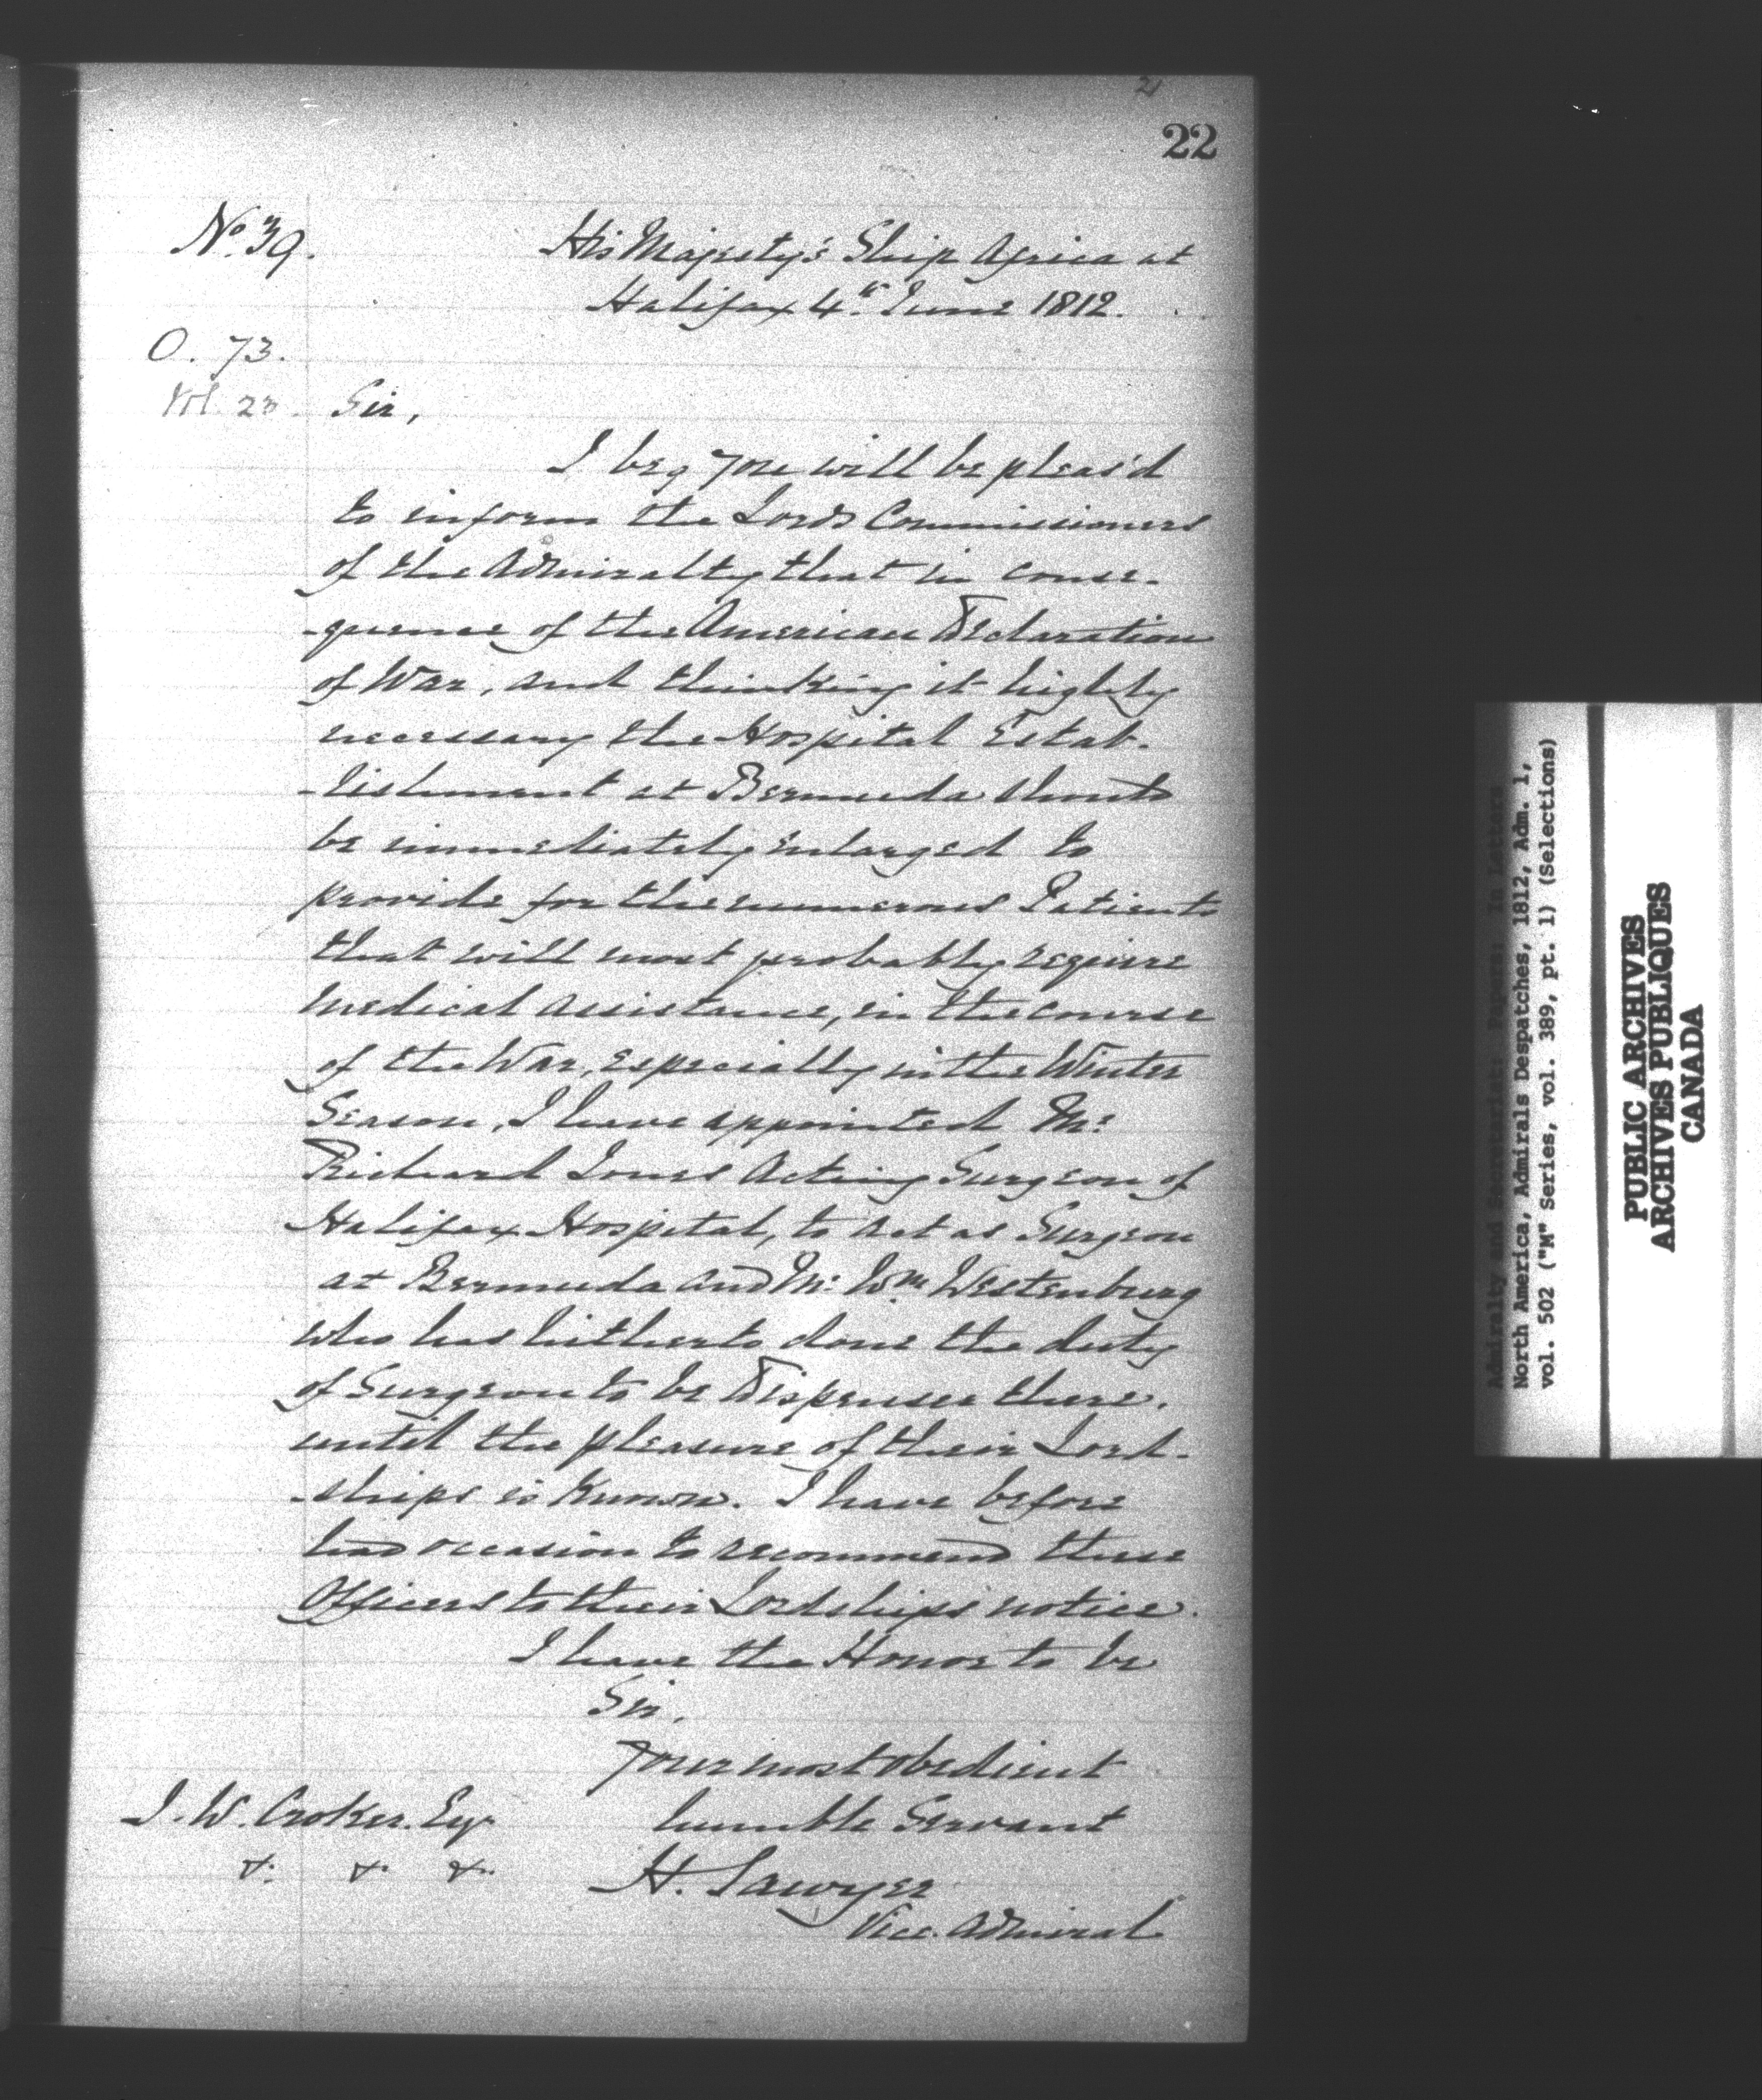 21
22
No. 39.
His Majesty's Ship Africa at
Halifax 4th June 1812.
O. 73.
Vol. 23.
Sir,
I beg you will be pleas'd
to inform the Lords Commissioners
of the Admiralty that in conse-
-quence of the American Declaration
of War, and thinking it highly
necessary the Hospital Estab-
-lishment at Bermuda should
be immediately enlarged to
provide for the numerous Patients
that will most probably require
medical assistance, in the course
of the War, especially in the Winter
Season, I have appointed Mr.
Richard Jones Acting Surgeon of
Halifax Hospital, to act as Surgeon
at Bermuda and Mr. Wm Westenburg
who has hitherto done the duty
of Surgeon to be Dispenser there,
until the pleasure of their Lord-
-ships is known. I have before
had occasion to recommend these
Officers to their Lordships' notice.
I have the Honor to be
Sir,
Your most obedient
humble Servant
H. Sawyer
Vice. Admiral
J. W. Croker. Esqr
&. &. &.
Admiralty and Secretariat: Papers: In Letters
North America, Admirals Despatches, 1812, Adm. 1,
vol. 502 ("M" Series, vol. 389, pt. 1) (Selections)
PUBLIC ARCHIVES
ARCHIVES PUBLIQUES
CANADA